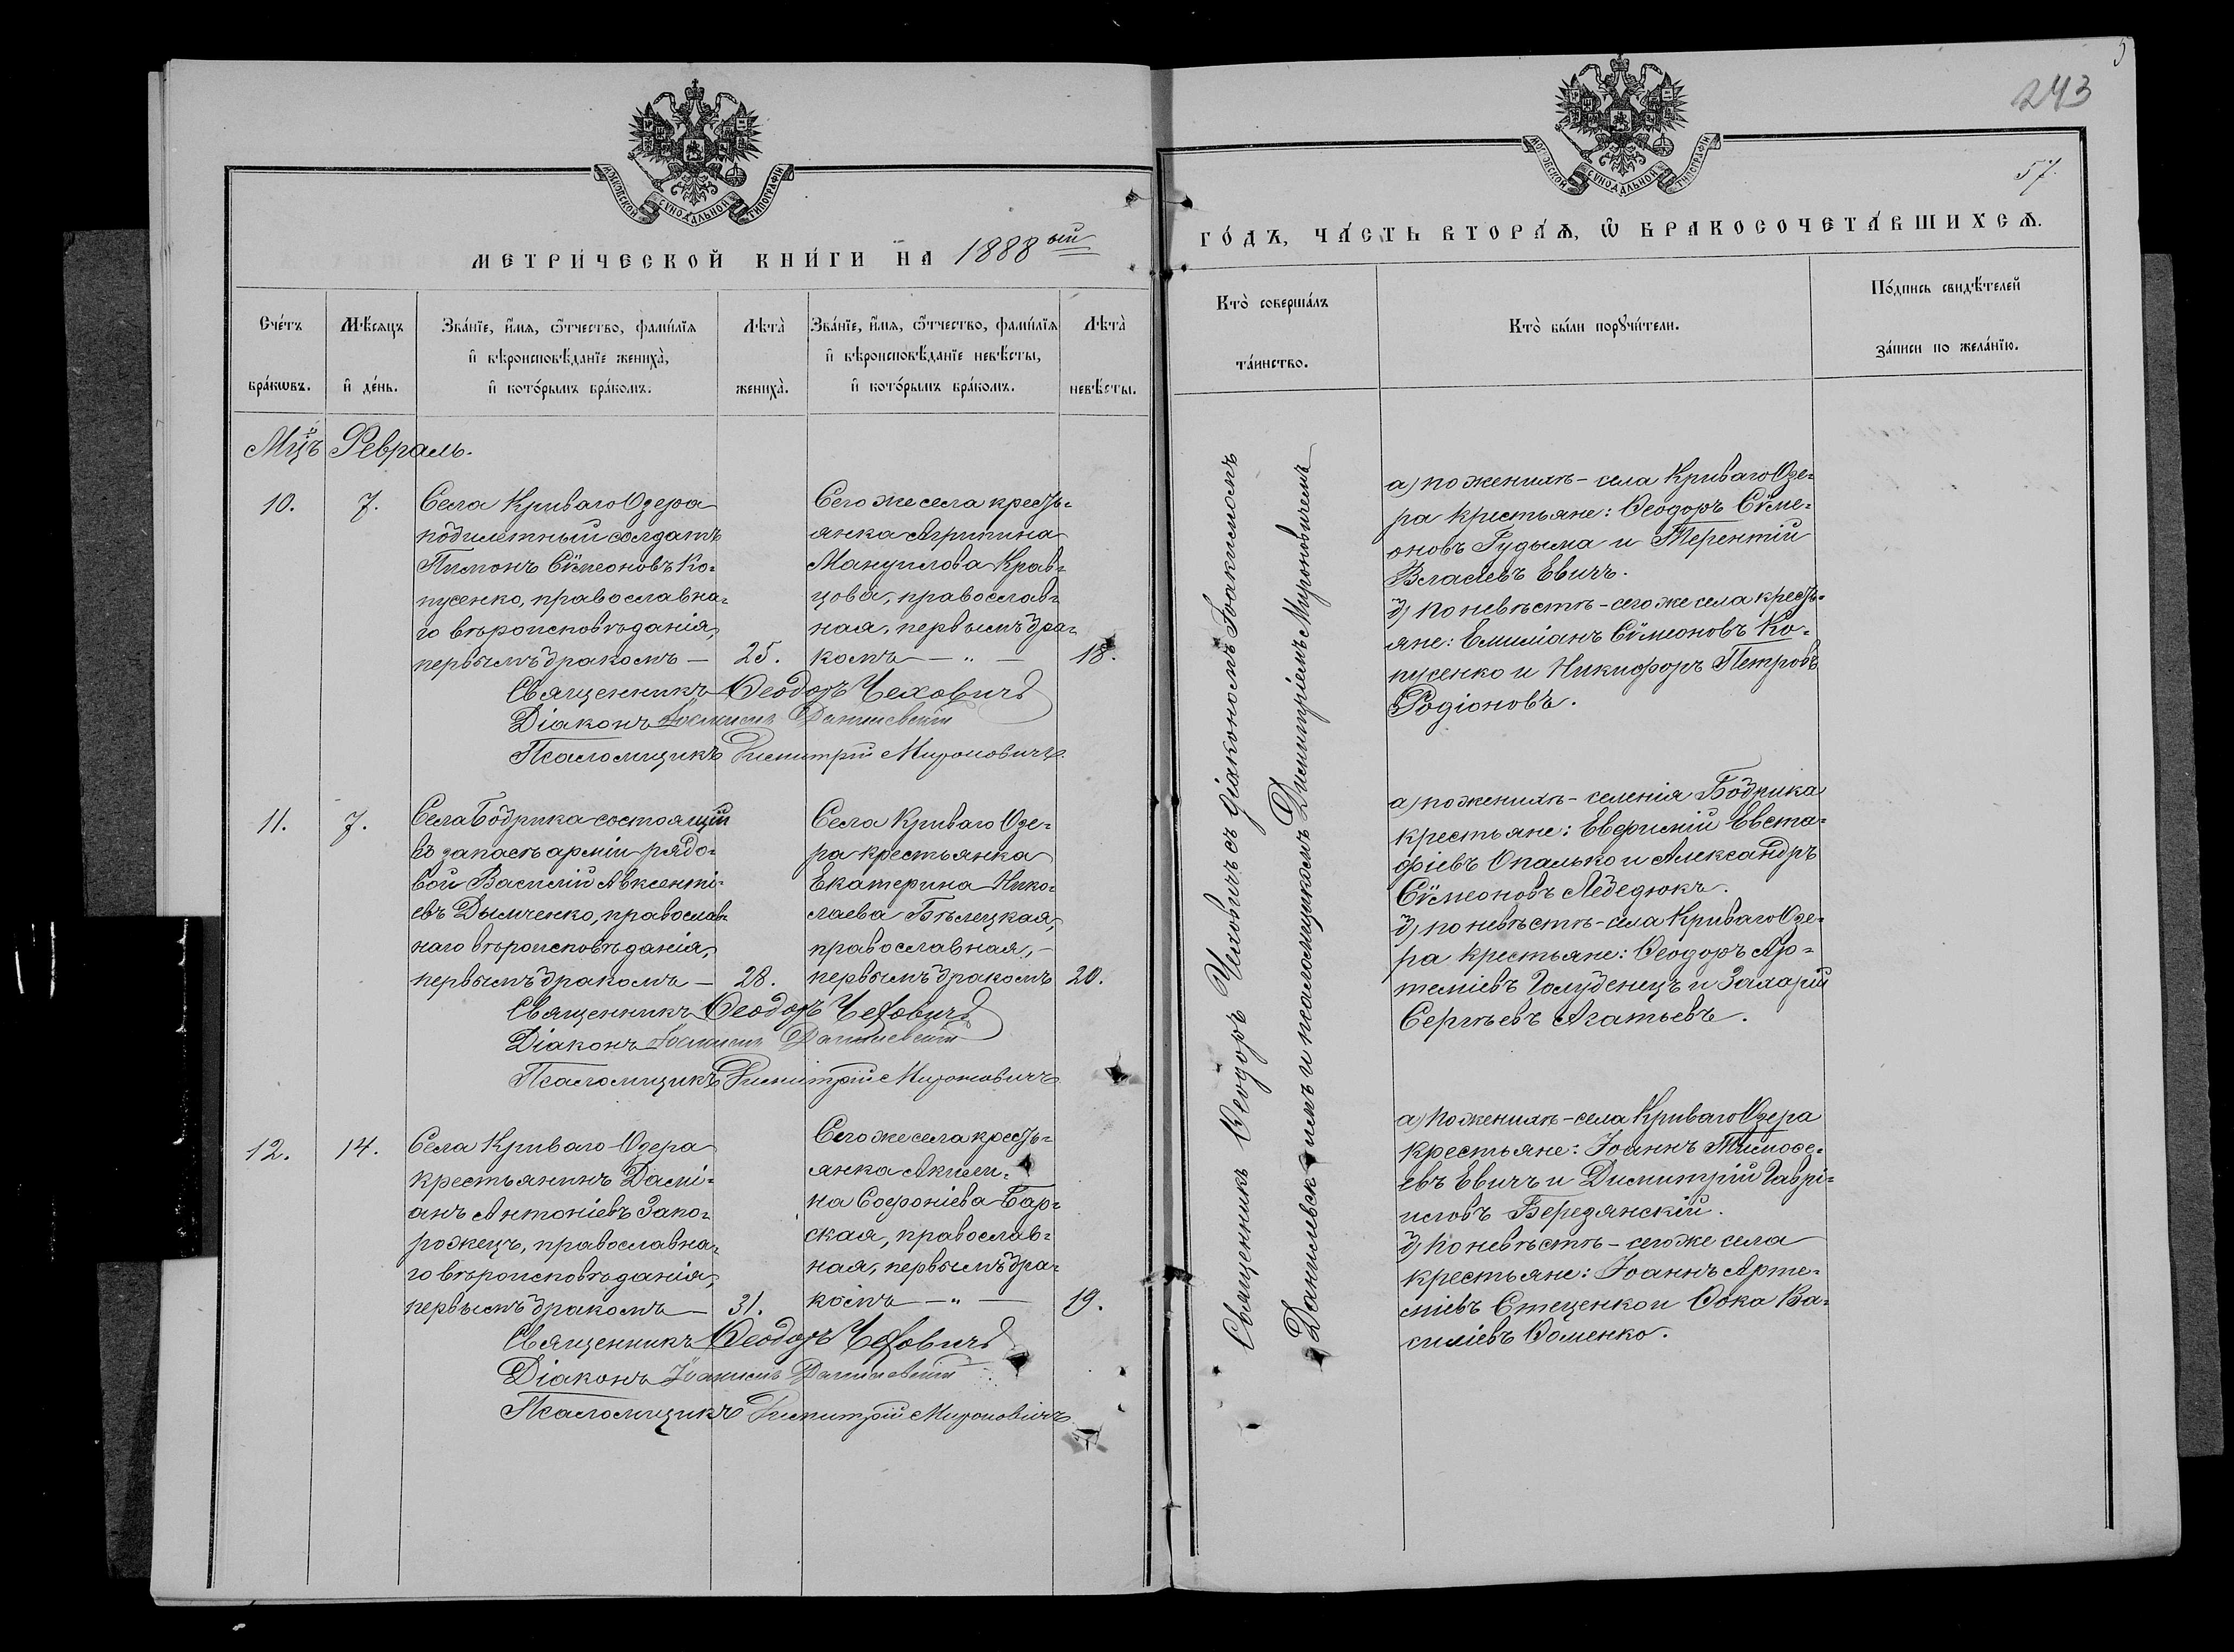 МОСКОВСКОЙ СУНОДАЛЬНОЙ ТИПОГРАФІИ
МЕТРИ́ЧЕСКОЙ КНИ́ГИ НА 1888ый
Сче́тъ бра́кѡвъ.
Мѣ́сяцъ и҆ де́нь.
Зва́нїе, и҆́мѧ, ѻ҆́тчество, фами́лїѧ
и҆ вѣроисповѣ́данїе жениха̀,
и҆ кото́рымъ бра́комъ.
Лѣта̀ жениха̀.
Зва́нїе, и҆́мѧ, ѻ҆́тчество, фами́лїѧ
и҆ вѣроисповѣ́данїе невѣ́сты,
и҆ кото́рымъ бра́комъ.
Лѣта̀ невѣ́сты.
Мцъ Февраль.
10.
7.
Села Криваго Озера
побилетный солдатъ
Пимонъ Сѵмеоновъ Ко-
пусенко, православна-
го вѣроисповѣданія,
первымъ бракомъ —
25.
Сего же села кресть-
янка Агрипина
Мануилова Крав-
цова, православ-
ная, первымъ бра-
комъ — " —
18.
Священникъ Ѳеодоръ Чеховичъ
Діаконъ Іоакимъ Данилевскій
Псаломщикъ Димитрій Мироновичъ
11.
7.
Села Бобрика состоящій
въ запасѣ арміи рядо-
вой Василій Авксенті-
евъ Дымченко, православ-
наго вѣроисповѣданія,
первымъ бракомъ —
28.
Села Криваго Озе-
ра крестьянка
Екатерина Нико-
лаева Бѣлецкая,
православная, —
первымъ бракомъ
20.
Священникъ Ѳеодоръ Чеховичъ
Діаконъ Іоакимъ Данилевскій
Псаломщикъ Димитрій Мироновичъ
12.
14.
Села Криваго Озера
крестьянинъ Дамі-
анъ Антоніевъ Запо-
рожецъ, православна-
го вѣроисповѣданія,
первымъ бракомъ —
31.
Сего же села кресть-
янка Акили-
на Софоніева Бар-
ская, православ-
ная, первымъ бра-
комъ — " —
19.
Священникъ Ѳеодоръ Чеховичъ
Діаконъ Іоакимъ Данилевскій
Псаломщикъ Димитрій Мироновичъ
243
57.
МОСКОВСКОЙ СУНОДАЛЬНОЙ ТИПОГРАФІИ
ГО́ДЪ, ЧА́СТЬ ВТОРА́Ѧ, Ѡ҆ БРАКОСОЧЕТА́ВШИХСѦ.
Кто̀ соверша́лъ
та́инство.
Кто̀ бы́ли порꙋчи́тели.
По́дпись свидѣ́телей
за́писи по жела́нїю.
Священникъ Ѳеодоръ Чеховичъ съ діакономъ Іоакимомъ
Данилевскимъ и псаломщикомъ Димитріемъ Мироновичемъ
а) по женихѣ – села Криваго Озе-
ра крестьяне: Ѳеодоръ Сѵме-
оновъ Гудыма и Терентій
Власіевъ Евичъ.
б) по невѣстѣ – сего же села кресть-
яне: Емиліанъ Сѵмеоновъ Ко-
пусенко и Никифоръ Петровъ
Родіоновъ.
а) по женихѣ – селенія Бобрика
крестьяне: Евфимій Евста-
фіевъ Опалько и Александръ
Сѵмеоновъ Лебедюкъ.
б) по невѣстѣ – села Криваго Озе-
ра крестьяне: Ѳеодоръ Ар-
теміевъ Голубенецъ и Захарій
Сергѣевъ Агатьевъ.
а) по женихѣ – села Криваго Озера
крестьяне: Іоаннъ Тимоѳе-
евъ Евичъ и Димитрій Гаврі-
иловъ Березянскій.
б) по невѣстѣ – сего же села
крестьяне: Іоаннъ Арте-
міевъ Стеценко и Ѳока Ва-
силіевъ Ѳоменко.